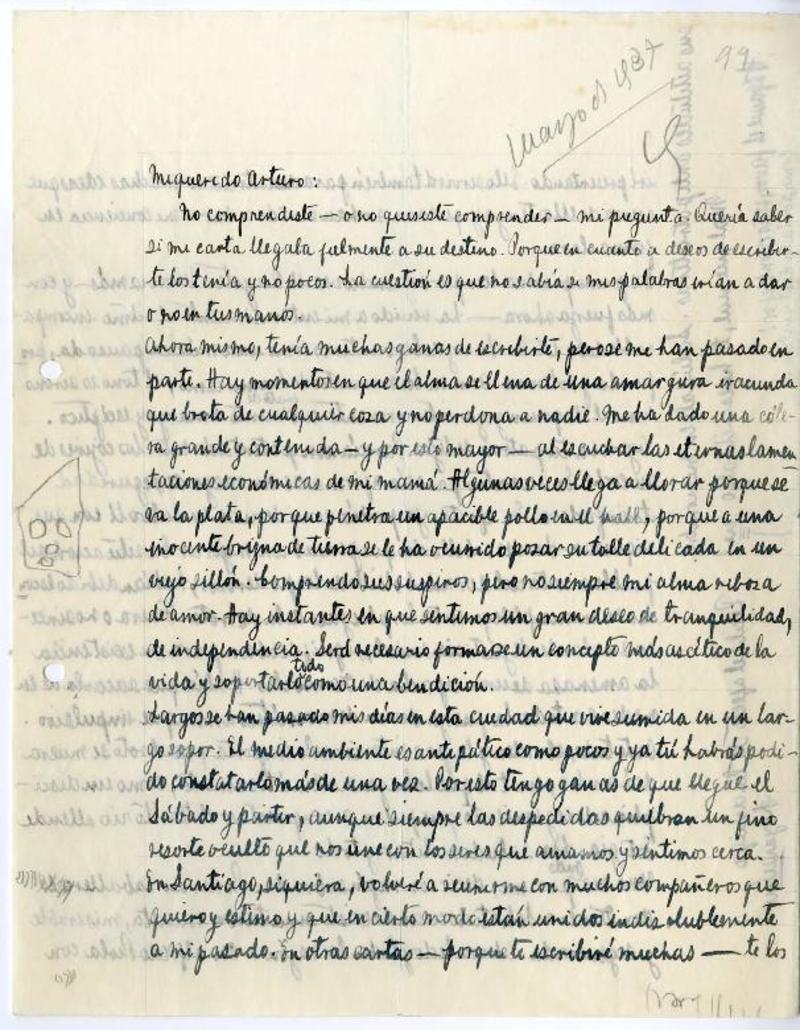 99
Marzo de 1937
Mi querido Arturo:
No comprendiste — o no quisiste comprender — mi pregunta. Quería saber
si mi carta llegaba fielmente a su destino. Porque en cuanto a deseos de escribir-
te los tenía y no pocos. La cuestión es que no sabía si mis palabras irían a dar
o no en tus manos.
Ahora mismo, tenía muchas ganas de escribirte, pero se me han pasado en
parte. Hay momentos en que el alma se llena de una amargura iracunda
que brota de cualquier coza y no perdona a nadie. Me ha dado una cóle-
ra grande y contenida — y por esto mayor — al escuchar las eternas lamen
taciones económicas de mi mamá. Algunas veces llega a llorar porque se
va la plata, porque penetra un apacible pollo en el hall, porque a una
inocente brizna de tierra se le ha ocurrido posar su talle delicada en un
viejo sillón. Comprendo sus suspiros, pero no siempre mi alma reboza
de amor. Hay instantes en que sentimos un gran deseo de tranquilidad,
de independencia. Será necesario formarse un concepto más ascético de la
vida y soportarlo todo como una bendición.
Largos se han pasado mis días en esta ciudad que vive sumida en un lar-
go sopor. El medio ambiente es antipático como pocos y ya tú habrás podi-
do constatarlo más de una vez. Por esto tengo ganas de que llegue el
Sábado y partir, aunque siempre las despedidas quiebran un fino
resorte oculto que nos une con los seres que amamos y sentimos cerca.
En Santiago, siquiera, volveré a reunirme con muchos compañeros que
quiero y estimo y que en cierto modo están unidos indisolublemente
a mi pasado. En otras cartas — porque te escribiré muchas — te los